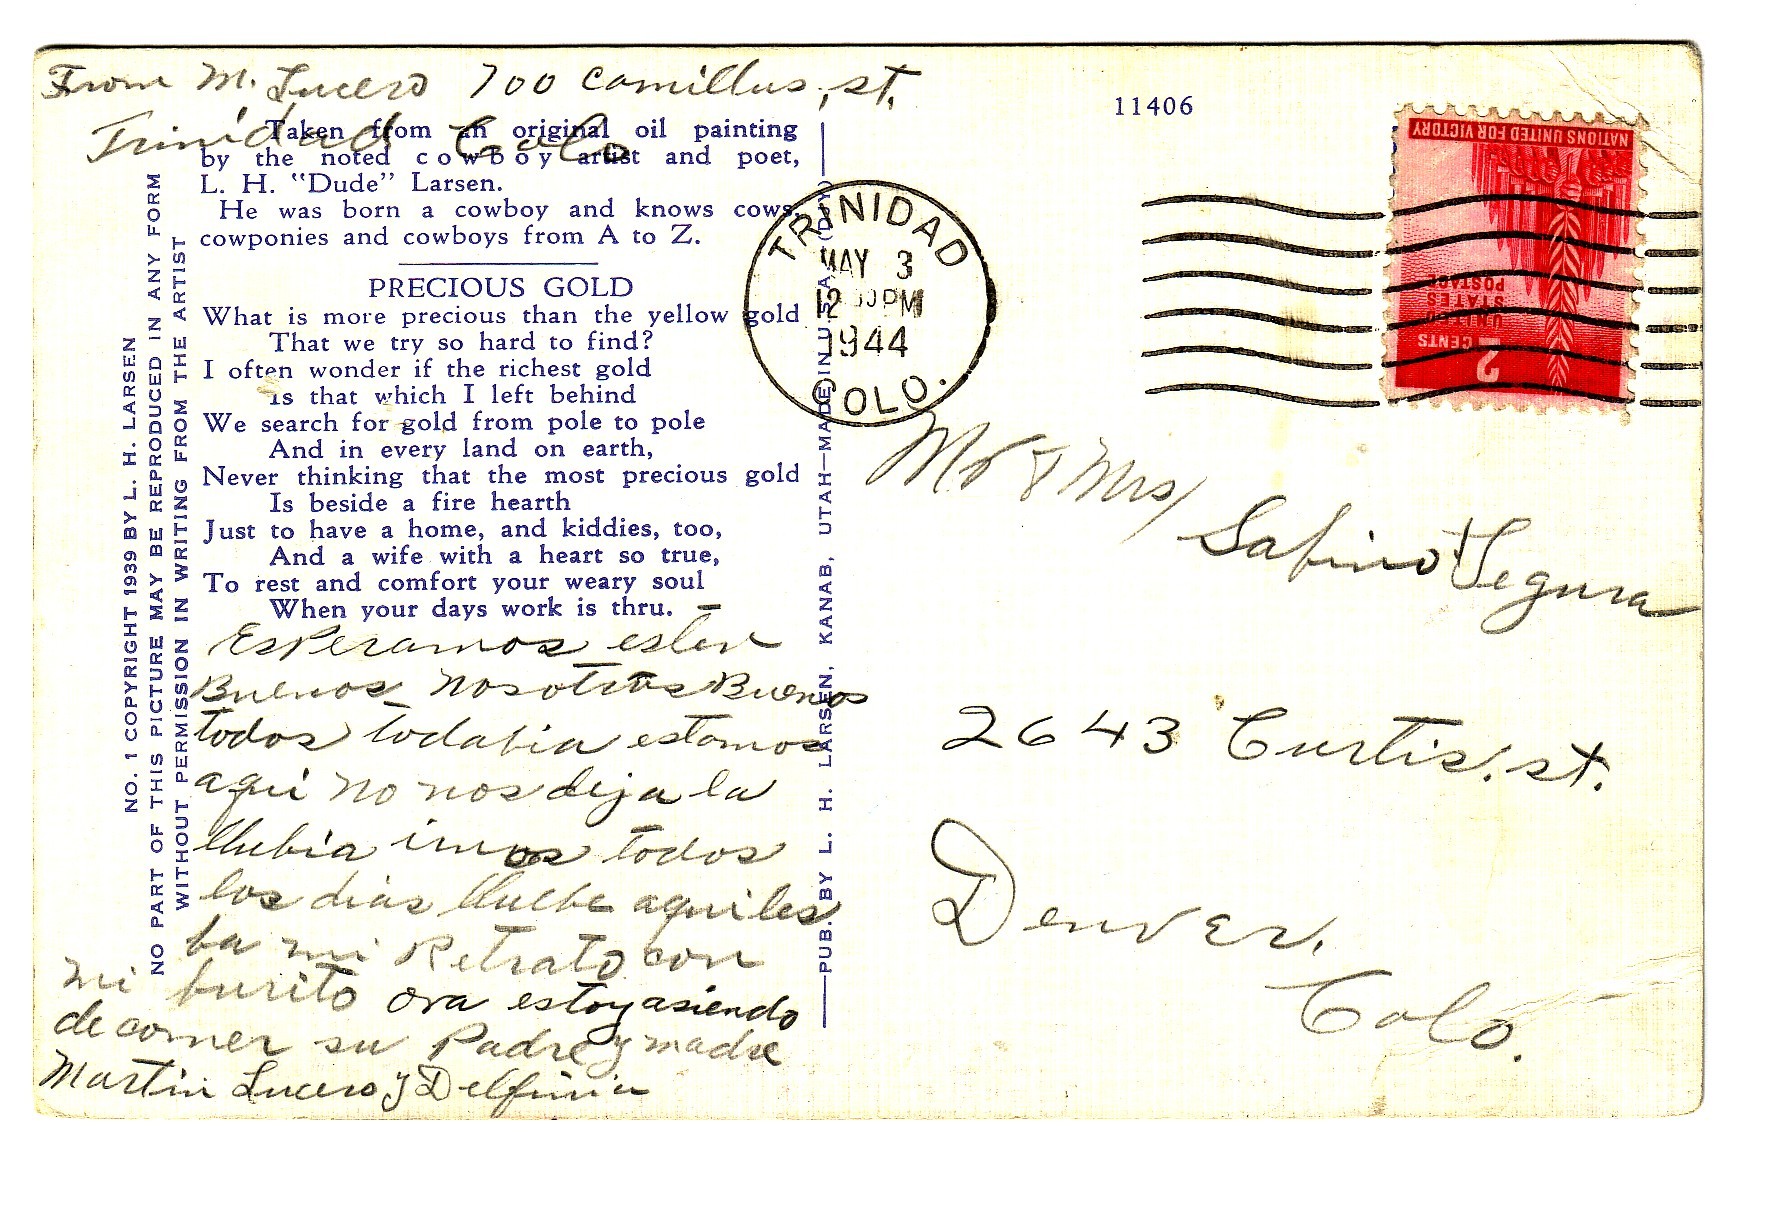 From M. Lucero 700 Camillus, st.
Trinidad Colo
11406
Taken from an original oil painting
by the noted cowboy artist and poet,
L. H. "Dude" Larsen.
He was born a cowboy and knows cows,
cowponies and cowboys from A to Z.
PRECIOUS GOLD
What is more precious than the yellow gold
That we try so hard to find?
I often wonder if the richest gold
Is that which I left behind
We search for gold from pole to pole
And in every land on earth,
Never thinking that the most precious gold
Is beside a fire hearth
Just to have a home, and kiddies, too,
And a wife with a heart so true,
To rest and comfort your weary soul
When your days work is thru.
Esperamos esten
Buenos nosotros Buenos
todos todabia estamos
aqui no nos deja la
llubia imos todos
los dias lluebe aqui les
ba mi Retrato con
mi burito ora estoy asiendo
de comer su Padre y madre
Martin Lucero y Delfinia
NO. 1 COPYRIGHT 1939 BY L. H. LARSEN
NO PART OF THIS PICTURE MAY BE REPRODUCED IN ANY FORM
WITHOUT PERMISSION IN WRITING FROM THE ARTIST
PUB. BY L. H. LARSEN, KANAB, UTAH—MADE IN U. S. A.
TRINIDAD
MAY 3
12 PM
1944
COLO.
NATIONS UNITED FOR VICTORY
UNITED
STATES
POSTAGE
2 CENTS
Mr & Mrs
Sabino Segura
2643 Curtis. st.
Denver.
Colo.